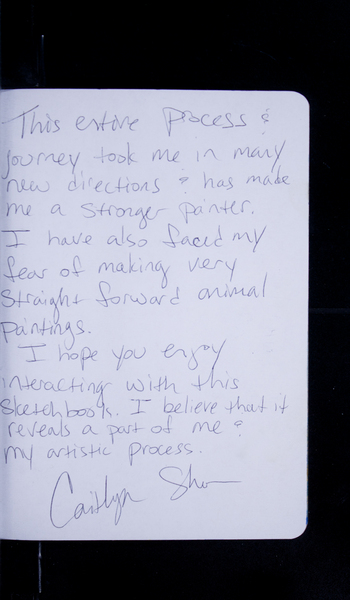 This entire process &
journey took me in many
new directions & has made
me a stronger painter.
I have also faced my
fear of making very
straight forward animal
paintings.
I hope you enjoy
interacting with this
sketchbook. I believe that it
reveals a part of me &
my artistic process.
Caitlyn